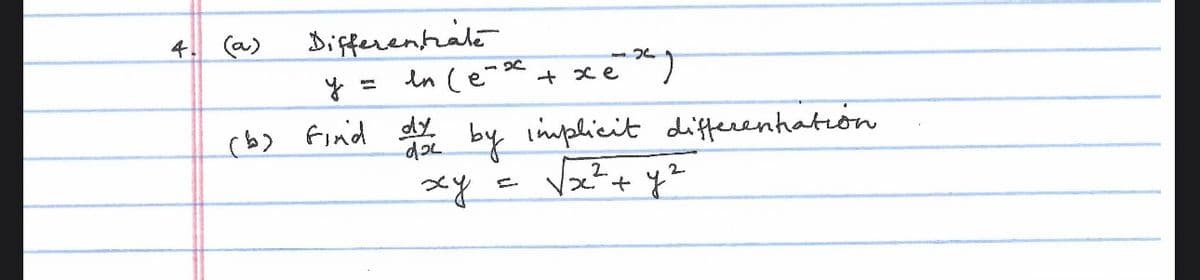 4. (a) Differentiate
y = ln (e^{-x} + xe^{-x})
(b) Find dy/dx by implicit differentiation
xy = √(x² + y²)